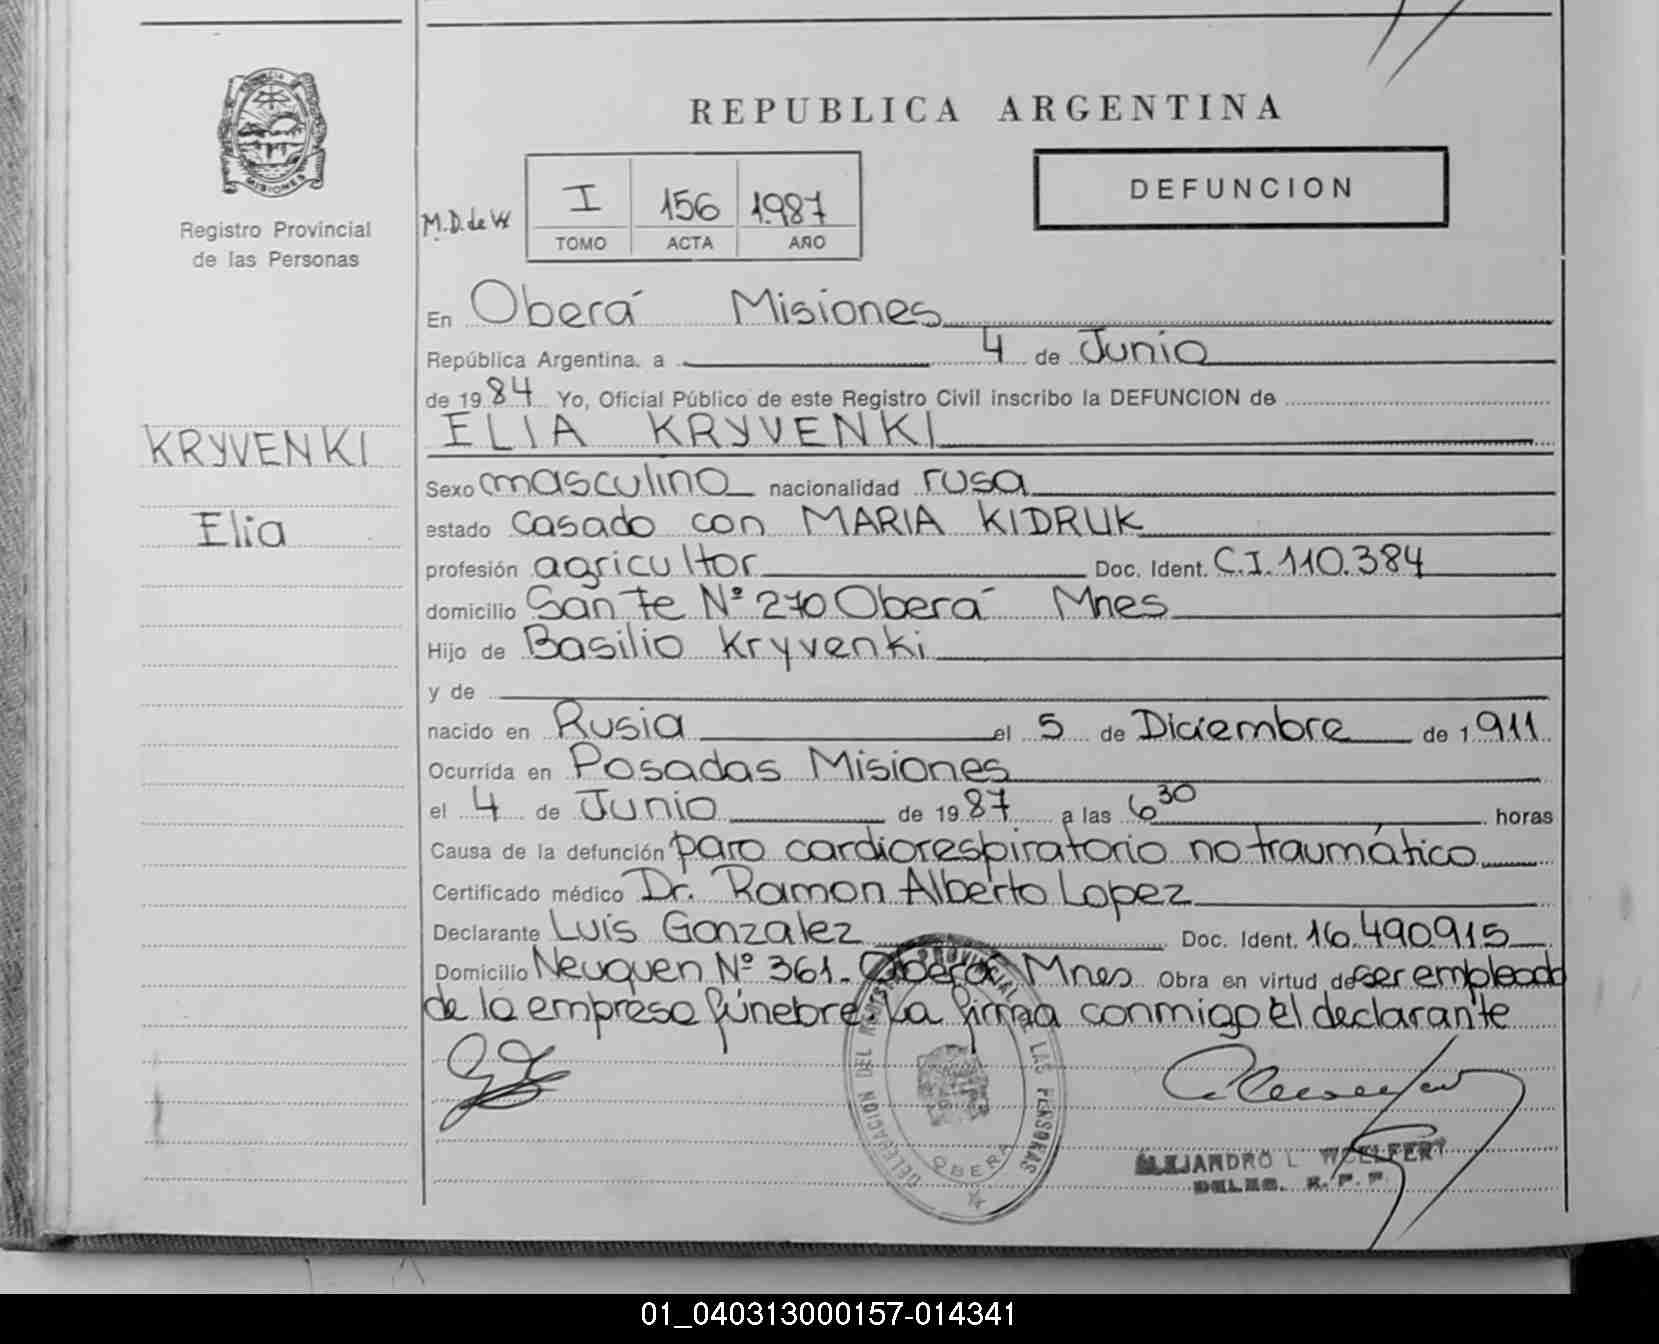 PROVINCIA
MISIONES
Registro Provincial
de las Personas
KRYVENKI
Elia
REPUBLICA ARGENTINA
DEFUNCION
M.D. de W
I 156 1987
TOMO ACTA AÑO
En Oberá Misiones
República Argentina, a 4 de Junio
de 1984 Yo, Oficial Público de este Registro Civil inscribo la DEFUNCION de
ELIA KRYVENKI
Sexo masculino nacionalidad rusa
estado casado con MARIA KIDRUK
profesión agricultor Doc. Ident. C.I.110.384
domicilio San Fe Nº 270 Oberá Mnes
Hijo de Basilio Kryvenki
y de
nacido en Rusia el 5 de Diciembre de 1911
Ocurrida en Posadas Misiones
el 4 de Junio de 1987 a las 6 30 horas
Causa de la defunción paro cardiorespiratorio no traumático
Certificado médico Dr. Ramon Alberto Lopez
Declarante Luis Gonzalez Doc. Ident. 16.490.915
Domicilio Neuquen Nº 361. Oberá Mnes Obra en virtud de ser empleado
de la empresa fúnebre. La firma conmigo el declarante
DELEGACION DEL PROVINCIAL LAS PERSONAS
OBERA
ALEJANDRO L WOELFERT
DELEG. R. P. P.
01_040313000157-014341